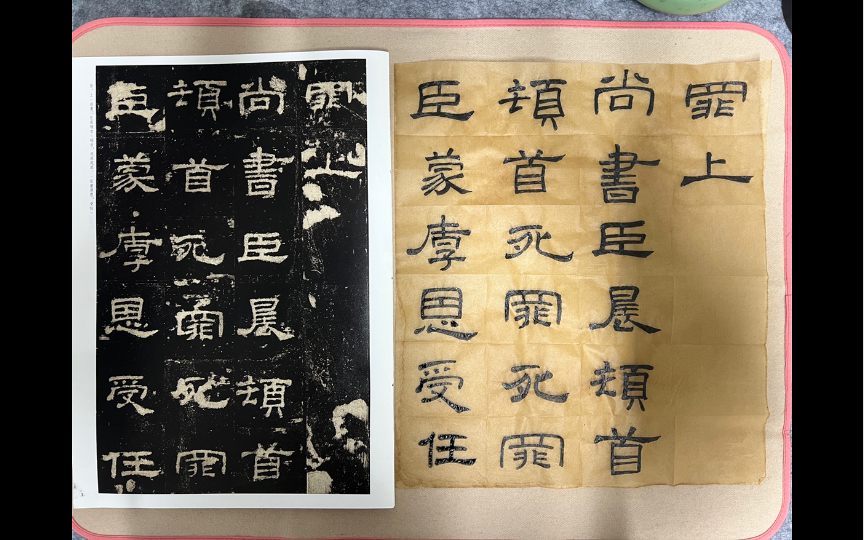 罪上
尚書臣晨頓首
頓首死罪死罪
臣蒙厚恩受任
罪上
尚書臣晨頓首
頓首死罪死罪
臣蒙厚恩受任